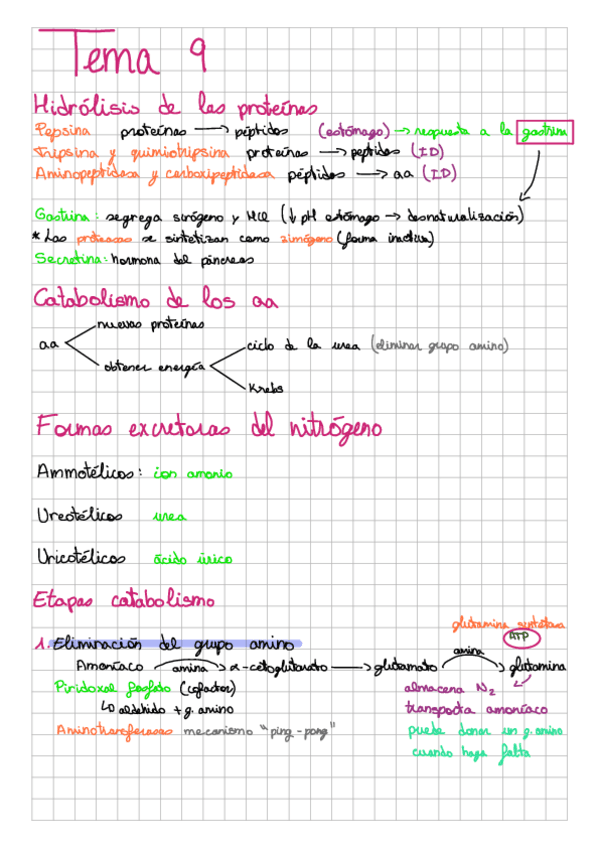 Tema 9
Hidrólisis de las proteínas
Pepsina proteínas → péptidos (estómago) → respuesta a la gastrina
Tripsina y quimiotripsina proteínas → péptidos (ID)
Aminopeptidasa y carboxipeptidasa péptidos → aa (ID)
Gastrina: segrega y HCl (↓ pH estómago → desnaturalización)
* Las proteasas se sintetizan como zimógeno (forma inactiva)
Secretina: hormona del páncreas
Catabolismo de los aa
nuevas proteínas
aa
ciclo de la urea (eliminar grupo amino)
obtener energía
Krebs
Formas excretoras del nitrógeno
Ammotélicos: ion amonio
Ureotélicos urea
Uricotélicos ácido úrico
Etapas catabolismo
glutamina sintetasa
ATP
1. Eliminación del grupo amino
amina
Amoníaco amina → α-cetoglutarato → glutamato → glutamina
Piridoxal fosfato (cofactor) almacena N₂
↳ aldehído + g. amino transporta amoníaco
Aminotransferasas mecanismo "ping-pong" puede donar un g. amino
cuando haga falta